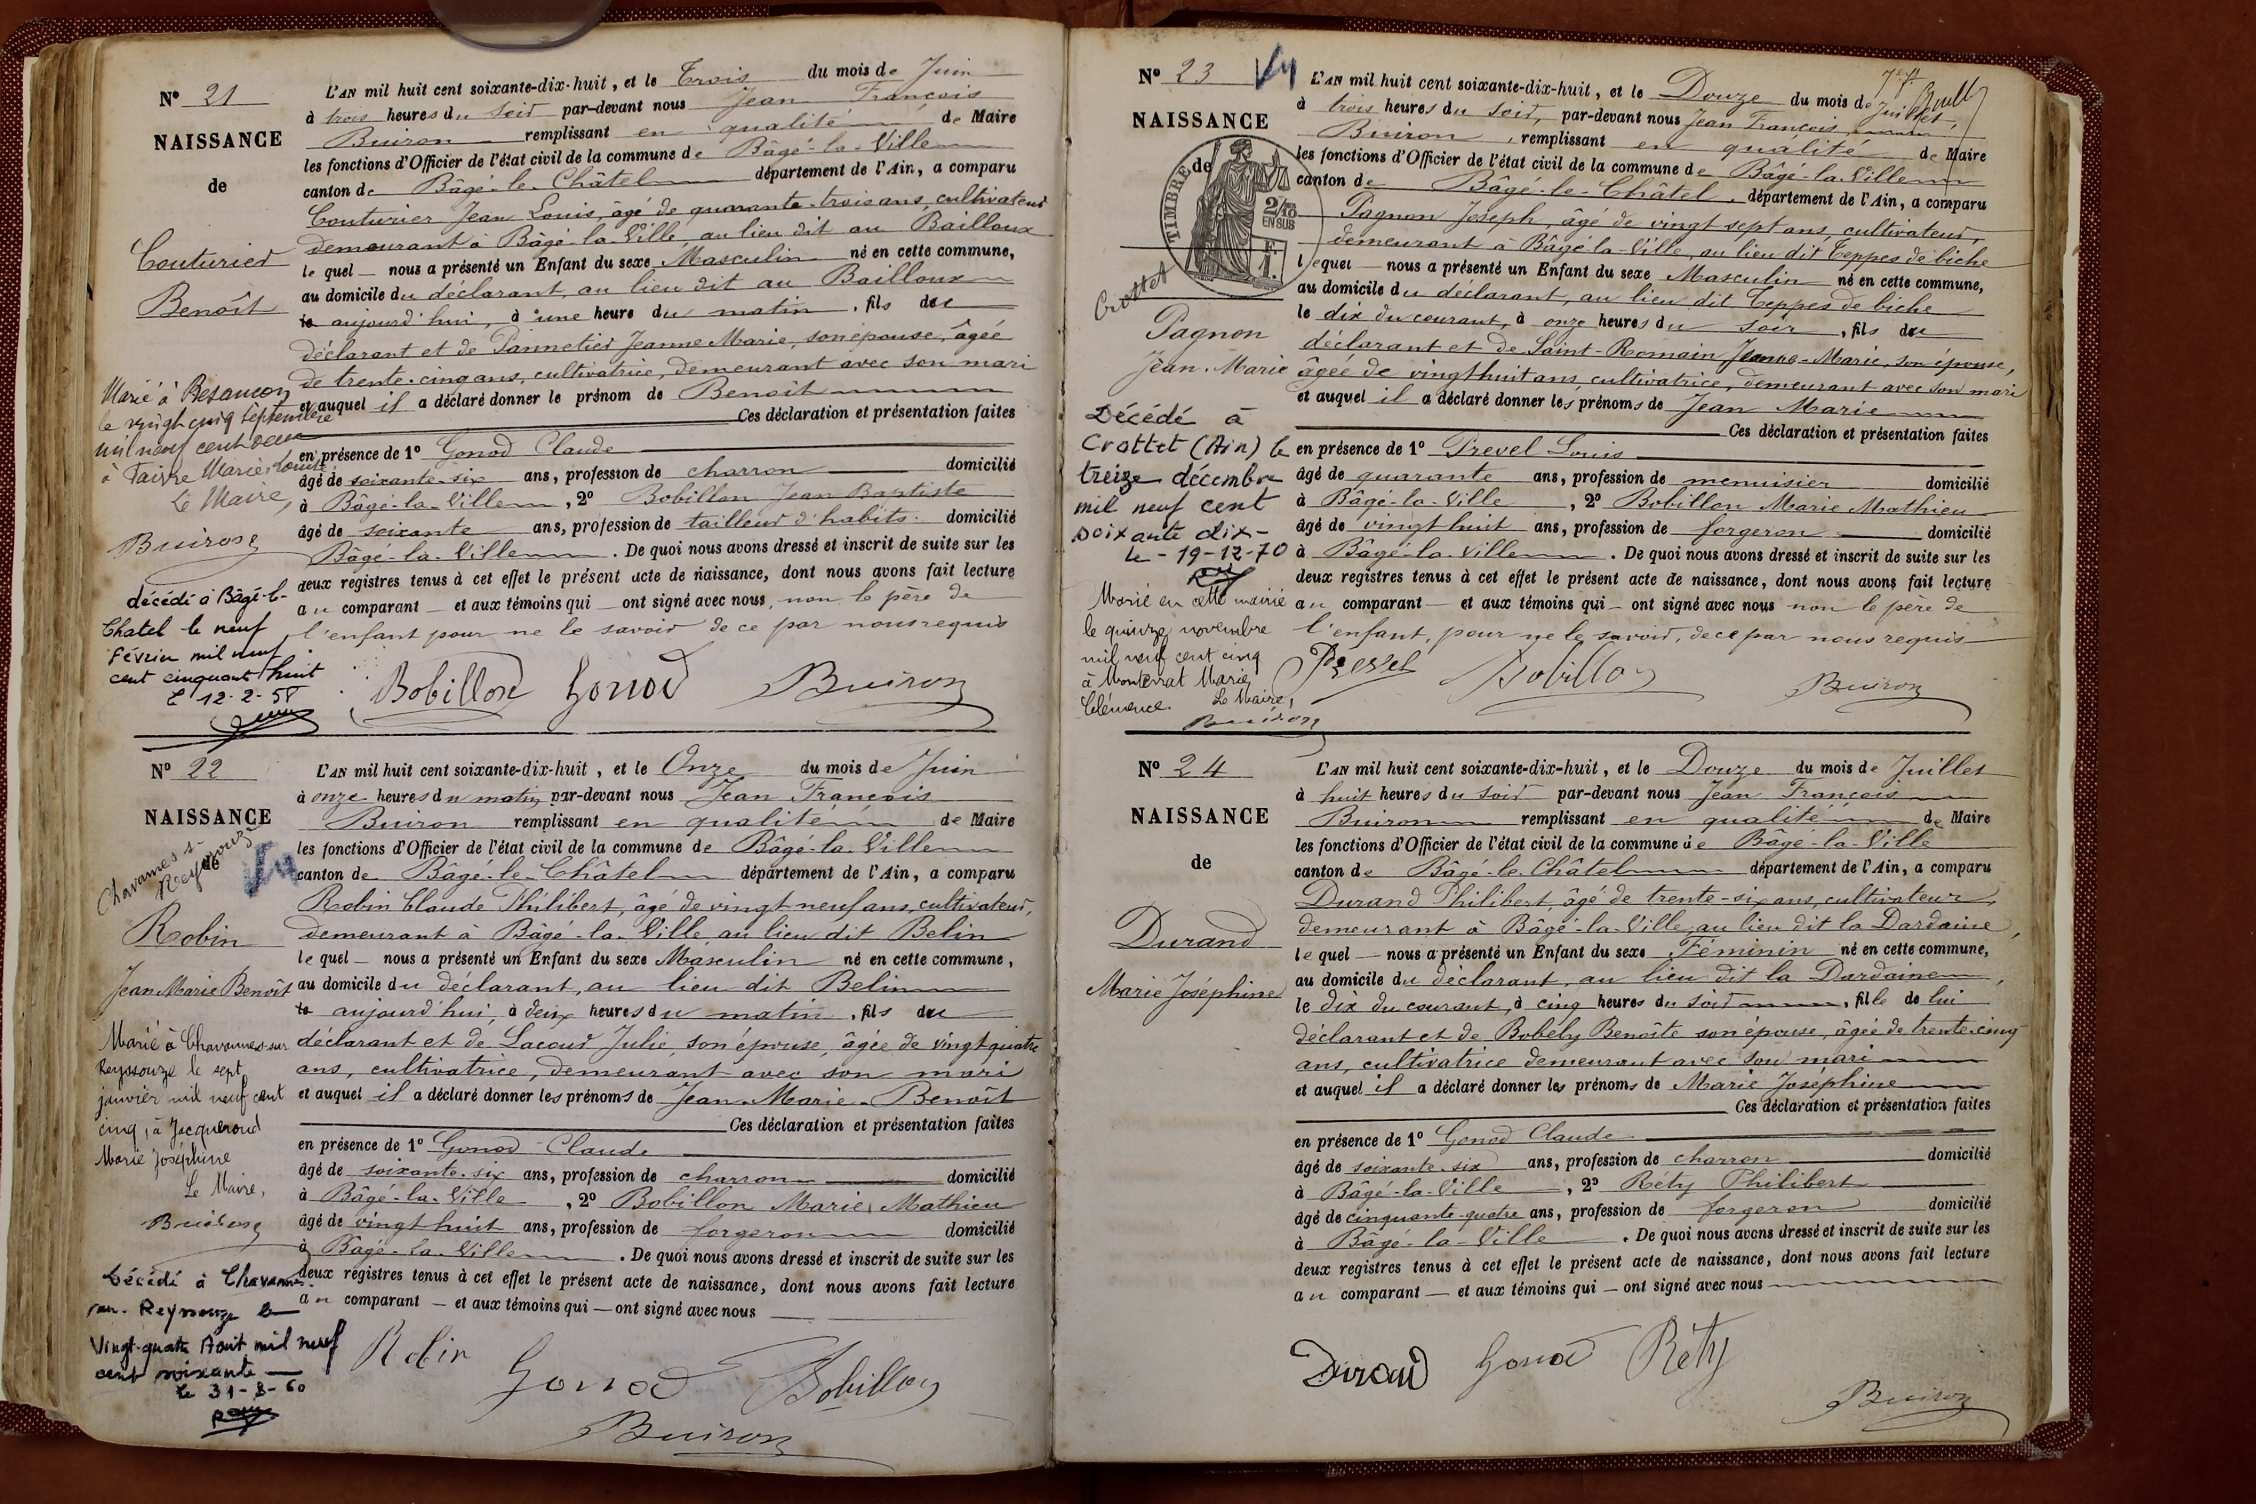 N° 21
NAISSANCE
de
Couturier
Benoît
Marié à Besançon
le vingt cinq septembre
mil neuf cent deux
à Faivre Marie Louise
Le Maire,
Buiron
décédé à Bâgé-le-
Chatel le neuf
Février mil neuf
cent cinquant huit
le 12-2-58
L'AN mil huit cent soixante-dix-huit, et le Trois du mois de Juin
à trois heures du soir par-devant nous Jean François
Buiron remplissant en qualité de Maire
les fonctions d'Officier de l'état civil de la commune de Bâgé-la-Ville
canton de Bâgé-le-Châtel département de l'Ain, a comparu
Couturier Jean Louis, âgé de quarante-trois ans, cultivateur
demeurant à Bâgé-la-Ville, au lieu dit au Bailloux
le quel — nous a présenté un Enfant du sexe Masculin né en cette commune,
au domicile du déclarant, au lieu dit au Bailloux
le aujourd'hui, à une heure du matin, fils du
déclarant et de Pannetier Jeanne Marie, son épouse, âgée
de trente-cinq ans, cultivatrice, demeurant avec son mari
et auquel il a déclaré donner le prénom de Benoît
Ces déclaration et présentation faites
en présence de 1° Gonod Claude
âgé de soixante-six ans, profession de charron domicilié
à Bâgé-la-Ville, 2° Bobillon Jean Baptiste
âgé de soixante ans, profession de tailleur d'habits. domicilié
Bâgé-la-Ville. De quoi nous avons dressé et inscrit de suite sur les
deux registres tenus à cet effet le présent acte de naissance, dont nous avons fait lecture
au comparant — et aux témoins qui — ont signé avec nous, non le père de
l'enfant pour ne le savoir de ce par nous requis
Bobillon Gonod Buiron
N° 22
NAISSANCE
Chavannes s-
Reyssouze
Robin
Jean Marie Benoît
Marié à Chavannes-sur
Reyssouze le sept
janvier mil neuf cent
cinq, à Jacqueroud
Marie Joséphine
Le Maire,
Buiron
Décédé à Chavannes
sur-Reyssouze le
Vingt-quatre Août mil neuf
cent soixante —
le 31-8-60
L'AN mil huit cent soixante-dix-huit, et le Onze du mois de Juin
à onze heures du matin par-devant nous Jean François
Buiron remplissant en qualité de Maire
les fonctions d'Officier de l'état civil de la commune de Bâgé-la-Ville
canton de Bâgé-le-Châtel département de l'Ain, a comparu
Robin Claude Philibert, âgé de vingt neuf ans, cultivateur,
demeurant à Bâgé-la-Ville au lieu dit Belin
le quel — nous a présenté un Enfant du sexe Masculin né en cette commune,
au domicile du déclarant, au lieu dit Belin
le aujourd'hui, à deux heures du matin, fils du
déclarant et de Lacour Julie, son épouse, âgée de vingt quatre
ans, cultivatrice, demeurant avec son mari
et auquel il a déclaré donner les prénoms de Jean-Marie-Benoît
Ces déclaration et présentation faites
en présence de 1° Gonod Claude
âgé de soixante-six ans, profession de charron domicilié
à Bâgé-la-Ville, 2° Bobillon Marie Mathieu
âgé de vingt huit ans, profession de forgeron domicilié
à Bâgé-la-Ville. De quoi nous avons dressé et inscrit de suite sur les
deux registres tenus à cet effet le présent acte de naissance, dont nous avons fait lecture
au comparant — et aux témoins qui — ont signé avec nous
Robin Gonod Bobillon
Buiron
N° 23
NAISSANCE
de
TIMBRE
2/10
EN SUS
Crottet
Pagnon
Jean-Marie
Décédé à
Crottet (Ain) le
treize décembre
mil neuf cent
soixante dix-
le - 19-12-70
Marié en cette mairie
le quinze novembre
mil neuf cent cinq
à Monterrat Marie
Clémence. Le Maire,
Buiron
L'AN mil huit cent soixante-dix-huit, et le Douze du mois de Juillet,
à trois heures du soir, par-devant nous Jean François
Buiron, remplissant en qualité de Maire
les fonctions d'Officier de l'état civil de la commune de Bâgé-la-Ville
canton de Bâgé-le-Châtel, département de l'Ain, a comparu
Pagnon Joseph, âgé de vingt sept ans, cultivateur,
demeurant à Bâgé-la-Ville, au lieu dit Teppes de biche
lequel — nous a présenté un Enfant du sexe Masculin né en cette commune,
au domicile du déclarant, au lieu dit Teppes de biche
le dix du courant, à onze heures du soir, fils du
déclarant et de Saint-Romain Jeanne-Marie, son épouse,
âgée de vingt huit ans, cultivatrice, demeurant avec son mari
et auquel il a déclaré donner les prénoms de Jean Marie
Ces déclaration et présentation faites
en présence de 1° Prevel Louis
âgé de quarante ans, profession de menuisier domicilié
à Bâgé-la-Ville, 2° Bobillon Marie Mathieu
âgé de vingt huit ans, profession de forgeron domicilié
à Bâgé-la-Ville. De quoi nous avons dressé et inscrit de suite sur les
deux registres tenus à cet effet le présent acte de naissance, dont nous avons fait lecture
au comparant — et aux témoins qui — ont signé avec nous non le père de
l'enfant, pour ne le savoir, de ce par nous requis
Prevel Bobillon Buiron
N° 24
NAISSANCE
de
Durand
Marie Joséphine
L'AN mil huit cent soixante-dix-huit, et le Douze du mois de Juillet
à huit heures du soir par-devant nous Jean François
Buiron remplissant en qualité de Maire
les fonctions d'Officier de l'état civil de la commune de Bâgé-la-Ville
canton de Bâgé-le-Châtel département de l'Ain, a comparu
Durand Philibert, âgé de trente-six ans, cultivateur,
demeurant à Bâgé-la-Ville, au lieu dit la Dardaine,
le quel — nous a présenté un Enfant du sexe Féminin né en cette commune,
au domicile du déclarant, au lieu dit la Dardaine,
le dix du courant, à cinq heures du soir, fille de lui
déclarant et de Bobely Benoîte son épouse, âgée de trente-cinq
ans, cultivatrice demeurant avec son mari
et auquel il a déclaré donner les prénoms de Marie Joséphine
Ces déclaration et présentation faites
en présence de 1° Gonod Claude
âgé de soixante-six ans, profession de charron domicilié
à Bâgé-la-Ville, 2° Réty Philibert
âgé de cinquante-quatre ans, profession de forgeron domicilié
à Bâgé-la-Ville. De quoi nous avons dressé et inscrit de suite sur les
deux registres tenus à cet effet le présent acte de naissance, dont nous avons fait lecture
au comparant — et aux témoins qui — ont signé avec nous
Durand Gonod Réty
Buiron